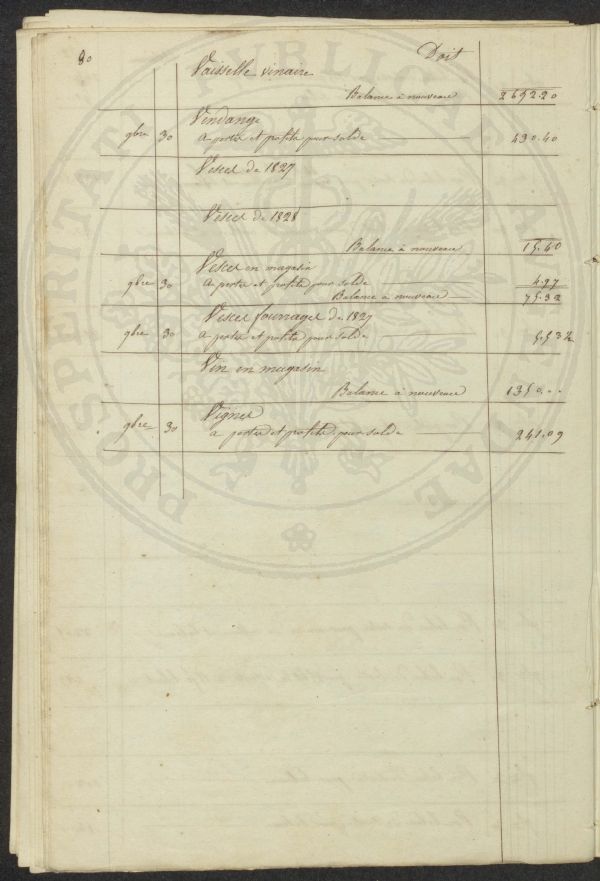 80
Vaisselle vinaire Doit
Balance à nouveau 2652.20
Vendange
9bre 30 a perte et profits pour solde 430.40
Vesces de 1827
Vesces de 1828
Balance à nouveau 15.40
Vesces en magasin
9bre 30 a perte et profits pour solde 4.97
Balance à nouveau 75.32
Vesces fourrages de 1827
9bre 30 a pertes et profits pour solde 5.53½
Vin en magasin
Balance à nouveau 1350...
Vignes
9bre 30 a pertes et profits pour solde 241.09
PROSPERITATI PUBLICAE